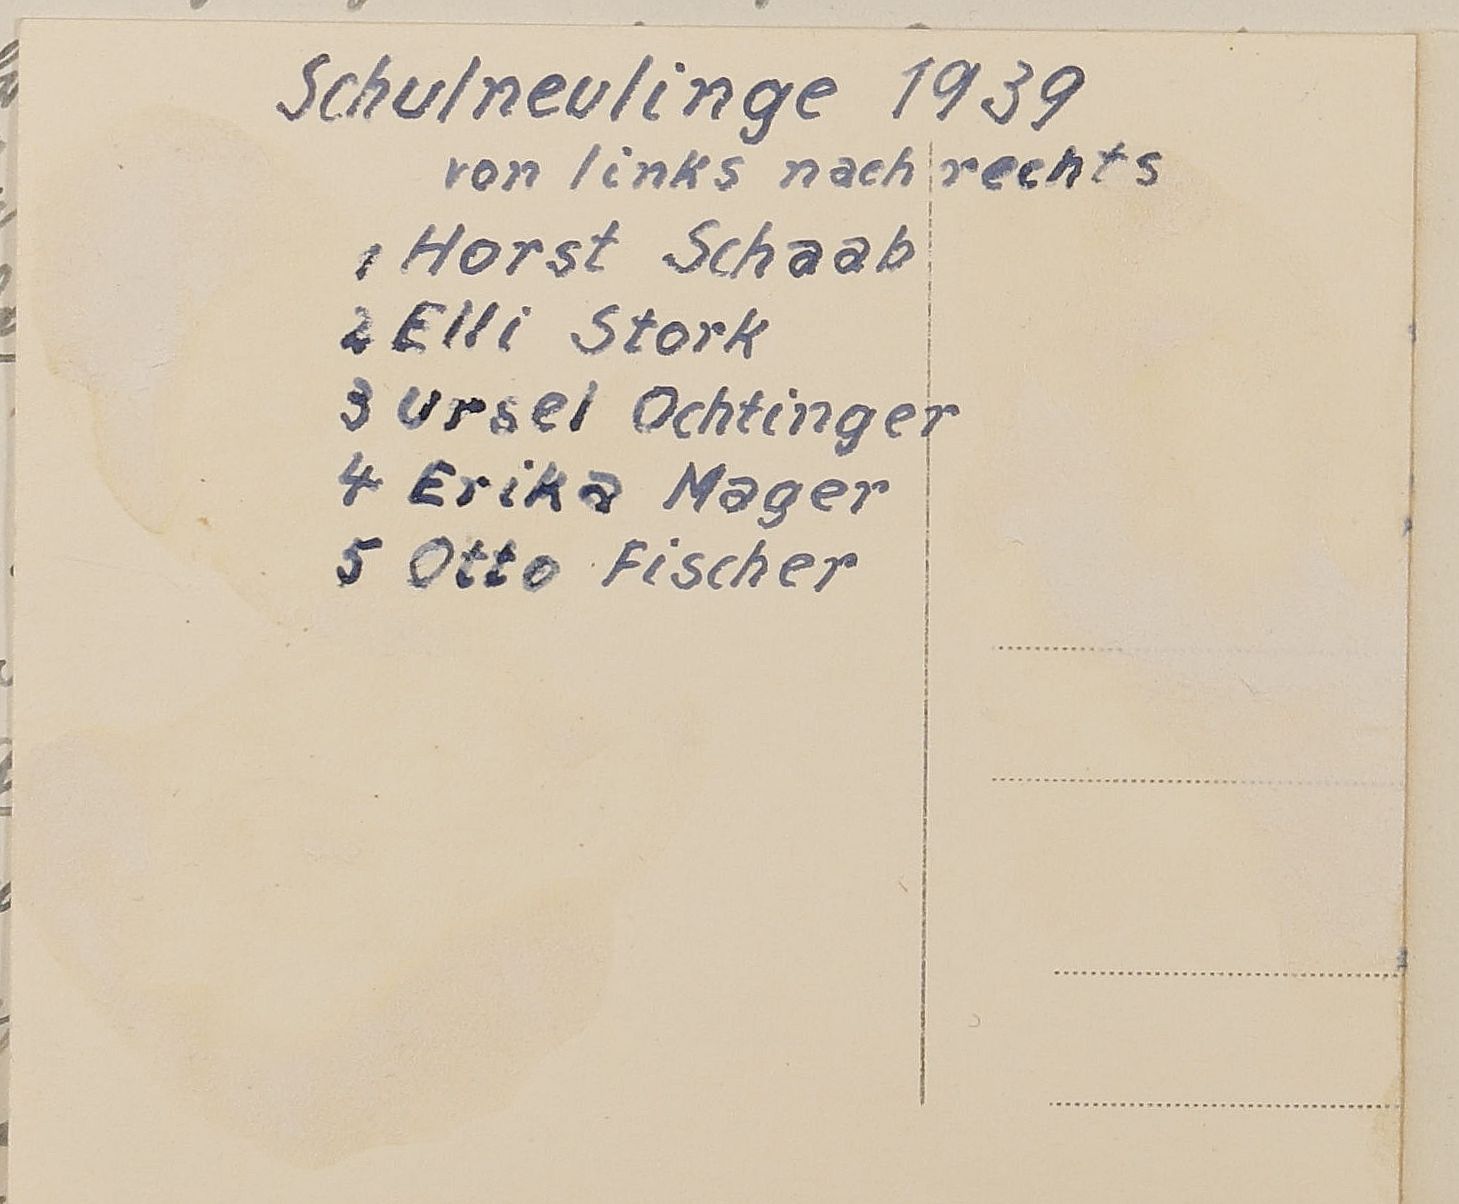 Schulneulinge 1939
von links nach rechts
1 Horst Schaab
2 Elli Stork
3 Ursel Ochtinger
4 Erika Mager
5 Otto Fischer